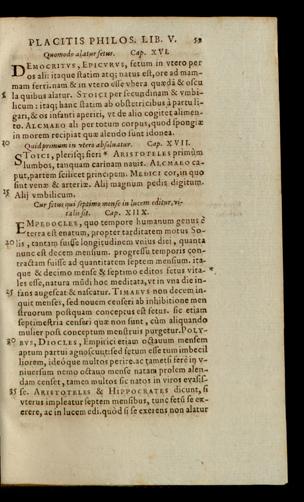 PLACITIS PHILOS. LIB. V. 59
Quomodo alatur fetus. Cap. XVI.
DEMOCRITVS, EPICVRVS, fetum in vtero per
os ali: itaque statim atq; natus est, ore ad mam-
mam ferri. nam & in vtero esse vbera quædā & oscu
5 la quibus alatur. STOICI per secundinam & vmbi-
licum: itaq; hanc statim ab obstetricibus à partu li-
gari, & os infanti aperiri, vt de alio cogitet alimen-
to. ALCMAEO ali per totum corpus, quod spongiæ
in morem recipiat quæ alendo sunt idonea.
20 Quid primum in vtero absoluatur. Cap. XVII.
STOICI, plerisq; fieri * ARISTOTELES primùm
lumbos, tanquam carinam nauit. ALCMAEO ca-
put, partem scilicet principem. MEDICI cor, in quo
sint venæ & arteriæ. Alij magnum pedis digitum.
25 Alij vmbilicum.
Cur fetus qui septimo mense in lucem editur, vi-
talis sit. Cap. XIIX.
EMPEDOCLES, quo tempore humanum genus è
terra est enatum, propter tarditatem motus So-
20 lis, tantam fuisse longitudinem vnius diei, quanta
nunc est decem mensium. progressu temporis con-
tractam fuisse ad quantitatem septem mensium. ita-
que & decimo mense & septimo editos fetus vita- *
les esse, natura mūdi hoc meditata, vt in vna die in-
25 fans augescat & nascatur. TIMAEVS non decem in-
quit menses, sed nouem censeri ab inhibitione men
struorum postquam conceptus est fetus. sic etiam
septimestria censeri quæ non sunt, cùm aliquando
mulier post conceptum menstruis purgetur. POLY-
30 BVS, DIOCLES, Empirici etiam octauum mensem
aptum partui agnoscunt: sed fetum esse tum imbecil
liorem, ideóque multos perire. ac tametsi ferè in v-
niuersum nemo octauo mense natam prolem alen-
dam censet, tamen multos sic natos in viros euasis-
35 se. ARISTOTELES & HIPPOCRATES dicunt, si
vterus impleatur septem mensibus, tunc fetū se ex-
erere, ac in lucem edi. quòd si se exerens non alatur